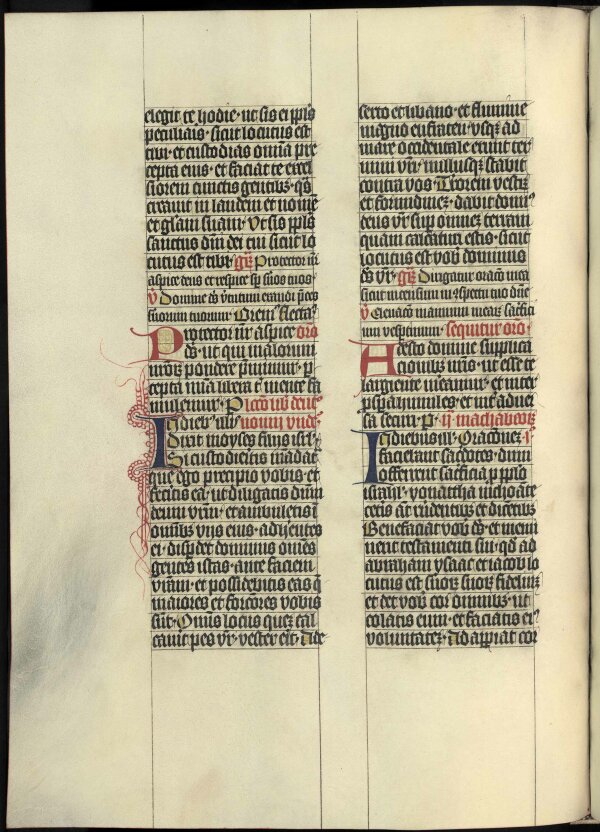 elegit te hodie · ut sis ei ppl's
peculiaris · sicut locutus est
tibi · et custodias omnia pre
cepta eius · et faciat te excel
siorem cunctis gentibz · qs
creauit in laudem et nome
et gl'iam suam · Ut sis ppl's
sanctus dni dei tui sicut lo
cutus est tibi · gr Protector nr
aspice deus et respice sp suos tuos ·
v Domine ds virtutum exaudi p̄ces
seruorum tuorum · Orem' flecta'
Protector nr aspice oro
ds · ut qui malorum
nrorz pondere premimur · p
cepta mia libera t mente fa
mulemur · P
In dieb' illis
dixit moyses filiis isrl'
Si custodieritis mandata
que ego precipio vobis · et
feceritis ea · ut diligatis dnm
deum vrm · et ambuletis i
omnibz viis eius · adherentes
ei · disperdet dominus omnes
gentes istas · ante faciem
vestram · et possidebitis eas q
maiores et forciores vobis
sut · Omnis locus quez cal
cauit pes vr · vester erit · A de
serto et libano · et flumine
magno eufraten · vsqz ad
mare occidentale erunt ter
mini vri · nullusqz stabit
contra vos Thorem vestrz
et formidinez · dabit domi'
deus vr sup omnez terram
quam calcaturi estis · sicut
locutus est vob dominus
ds vr · gr Dirigatur oracio mea
sicut incensum in conspectu tuo dne
v Eleuacio manuum mearz sacrifici
um vespertinum · sequitur oro ·
Adesto domine supplica
cionibz nris · ut esse te
largiente mereamur · et inter
prospera humiles · et int' aduer
sa securi · P · ii machabeorz
In diebus ill' · Oracionez
faciebant sacerdotes · dum
offerrent sacrificia p pplo
israhl' · yonatha inchoate
ceteris aut respondentibz et dicetibz
Benefaciat vob ds · et memi
nerit testamenti sui · qd ad
abraham ysaac et iacob lo
cutus est suorz suorz fidelium
et det vob cor omnibz · ut
colatis eum · et faciatis ei'
voluntatez · Adaperiat cor